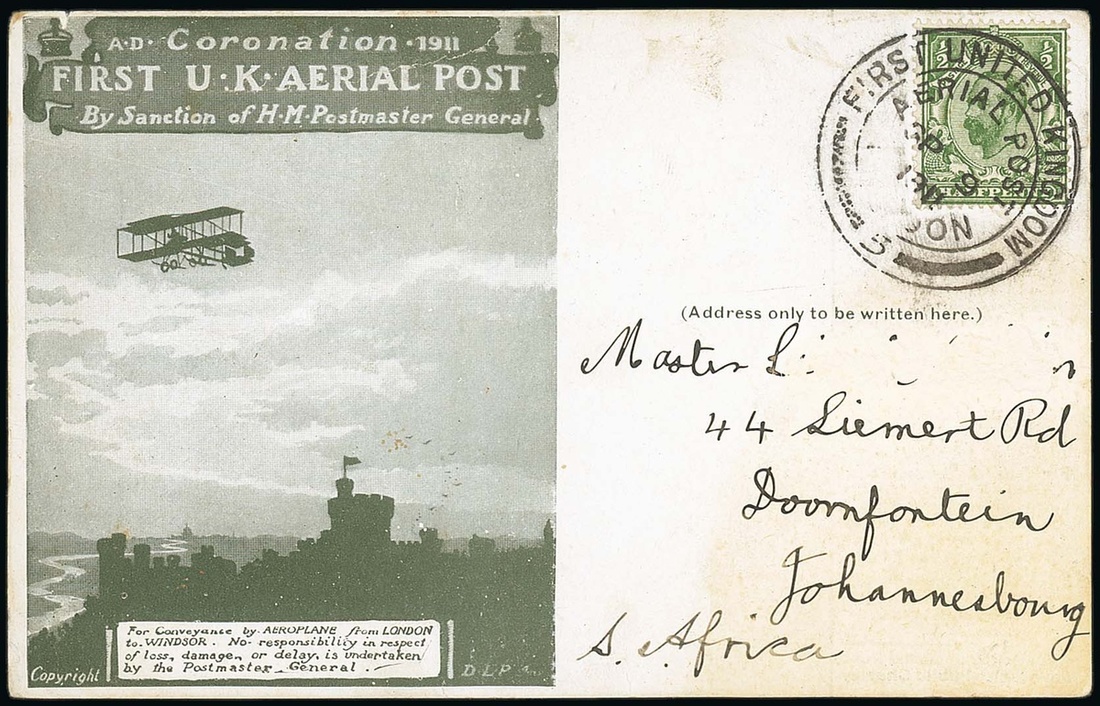 A·D· Coronation ·1911
FIRST U·K·AERIAL POST
By Sanction of H·M·Postmaster General·
For Conveyance by AEROPLANE from LONDON
to WINDSOR. No responsibility in respect
of loss, damage, or delay, is undertaken
by the Postmaster General.
Copyright
D·L·P
1/2 1/2
FIRST UNITED KINGDOM
AERIAL POST
SP
5
(Address only to be written here.)
Master
44 Siemert Rd
Doornfontein
Johannesbourg
S. Africa